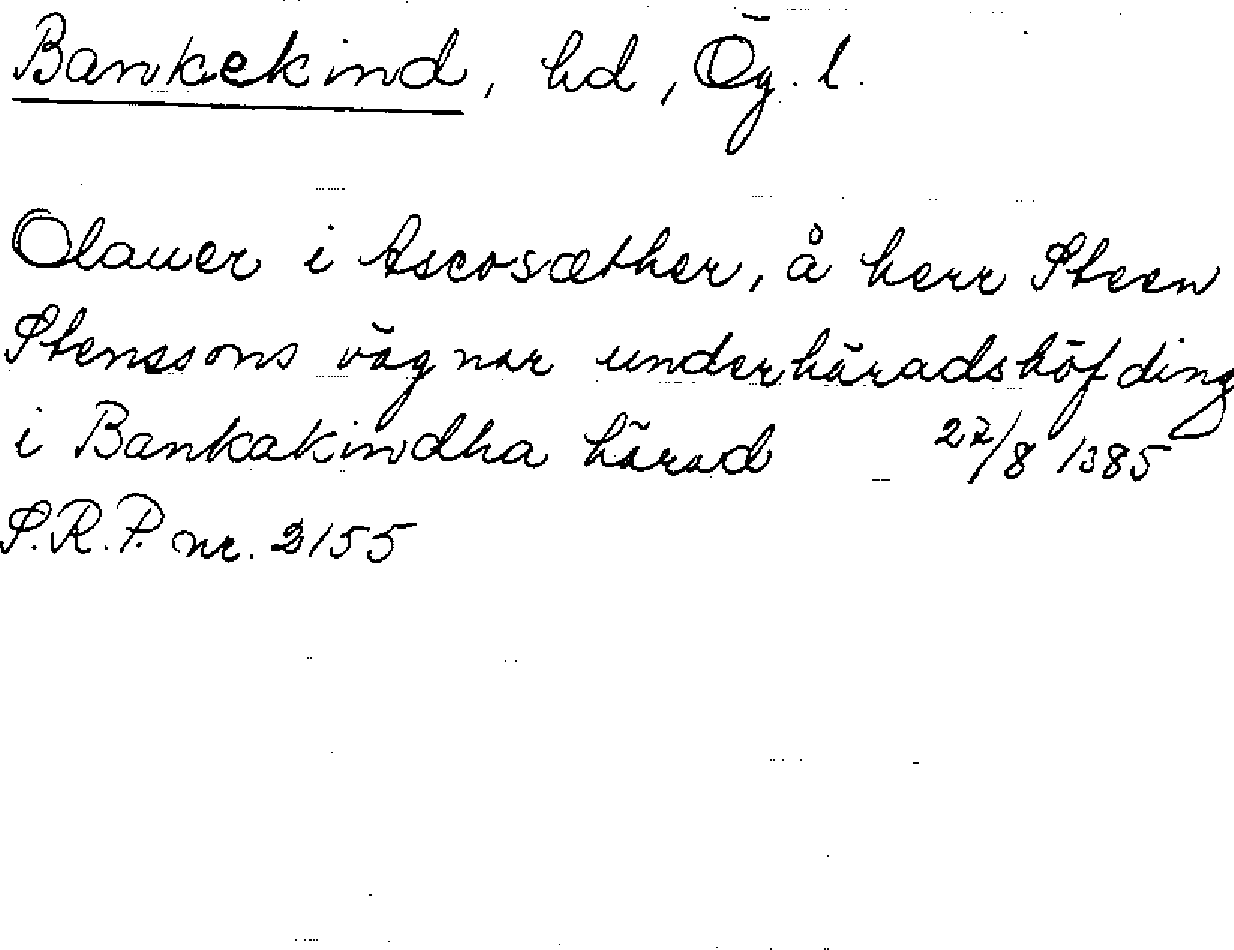 Bankekind, hd, Ög. l.
Olauer i Ascosæther, å herr Steen
Stenssons vägnar underhäradshöfding
i Bankakindha härad 27/8 1385
S.R.P. nr. 2155